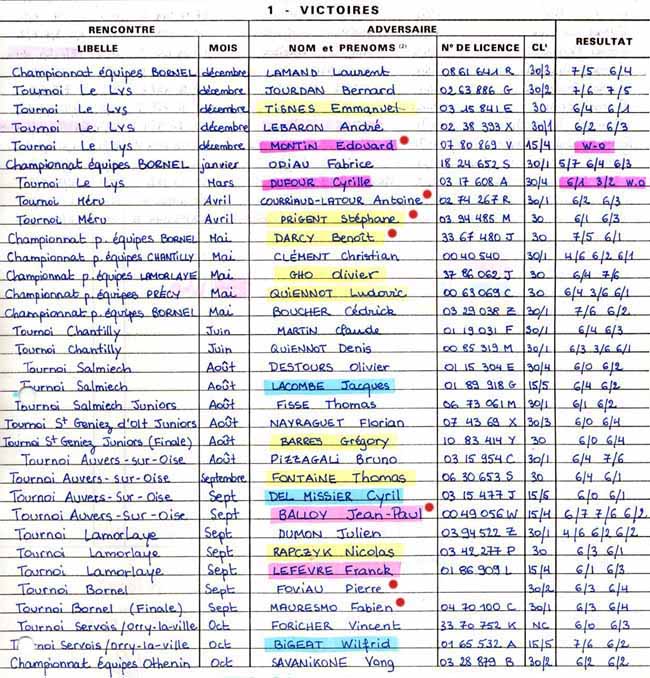 1 - VICTOIRES
RENCONTRE ADVERSAIRE RESULTAT
LIBELLE MOIS NOM et PRENOMS (2) N° DE LICENCE CL'
Championnat équipes BORNEL décembre LAMAND Laurent 08 61 641 R 30/3 7/5 6/4
Tournoi Le Lys décembre JOURDAN Bernard 02 63 886 G 30/2 7/6 7/5
Tournoi Le Lys décembre TISNES Emmanuel 03 15 841 E 30 6/4 6/1
Tournoi Le Lys décembre LEBARON André 02 38 393 X 30/1 6/2 6/3
Tournoi Le Lys décembre MONTIN Edouard 07 80 869 V 15/4 W-o
Championnat équipes BORNEL janvier ODIAU Fabrice 18 24 652 S 30/1 5/7 6/4 6/3
Tournoi Le Lys Mars DUFOUR Cyrille 03 17 608 A 30/4 6/1 3/2 w.o
Tournoi Méru Avril COURRIAUD-LATOUR Antoine 02 74 267 R 30/1 6/2 6/3
Tournoi Méru Avril PRIGENT Stéphane 03 94 485 M 30 6/1 6/3
Championnat p. équipes BORNEL Mai DARCY Benoît 33 67 480 J 30 7/5 6/1
Championnat p. équipes CHANTILLY Mai CLÉMENT Christian 00 40 540 30/1 4/6 6/2 6/1
Championnat p. équipes LAMORLAYE Mai GHO Olivier 37 86 062 J 30 6/4 7/6
Championnat p. équipes PRÉCY Mai QUIENNOT Ludovic 00 63 069 C 30 6/4 3/6 6/1
Championnat p. équipes BORNEL Mai BOUCHER Cédrick 03 29 038 Z 30/1 7/6 6/2
Tournoi Chantilly Juin MARTIN Claude 01 19 031 F 30/1 6/4 6/3
Tournoi Chantilly Juin QUIENNOT Denis 00 85 319 M 30/1 6/3 3/6 6/1
Tournoi Salmiech Août DESTOURS Olivier 01 15 304 E 30/4 6/0 6/2
Tournoi Salmiech Août LACOMBE Jacques 01 89 918 G 15/5 6/4 6/2
Tournoi Salmiech Juniors Août FISSE Thomas 06 73 061 M 30/1 6/1 6/2
Tournoi St Geniez d'Olt Juniors Août NAYRAGUET Florian 07 43 69 X 30/3 6/0 6/4
Tournoi St Geniez Juniors (Finale) Août BARRES Grégory 10 83 414 Y 30 6/0 6/4
Tournoi Auvers-sur-Oise Août PIZZAGALI Bruno 03 15 954 C 30/1 6/4 7/6
Tournoi Auvers-sur-Oise Septembre FONTAINE Thomas 06 30 653 S 30 6/4 6/1
Tournoi Auvers-sur-Oise Sept DEL MISSIER Cyril 03 15 477 J 15/5 6/0 6/1
Tournoi Auvers-sur-Oise Sept BALLOY Jean-Paul 00 49 056 W 15/4 6/7 7/6 6/2
Tournoi Lamorlaye Sept DUMON Julien 03 94 522 Z 30/1 4/6 6/2 6/2
Tournoi Lamorlaye Sept RAPCZYK Nicolas 03 42 277 P 30 6/3 6/1
Tournoi Lamorlaye Sept LEFEVRE Franck 01 86 909 L 15/4 6/1 6/3
Tournoi Bornel Sept FOVIAU Pierre 30/2 6/3 6/4
Tournoi Bornel (Finale) Sept MAURESMO Fabien 04 70 100 C 30/1 6/3 6/4
Tournoi Servois/orry-la-ville Oct FORICHER Vincent 33 70 752 K NC 6/0 6/3
Tournoi Servois/orry-la-ville Oct BIGEAT Wilfrid 01 65 532 A 15/5 7/6 6/2
Championnat Équipes Othenin Oct SAVANIKONE Vong 03 28 879 B 30/2 6/2 6/2